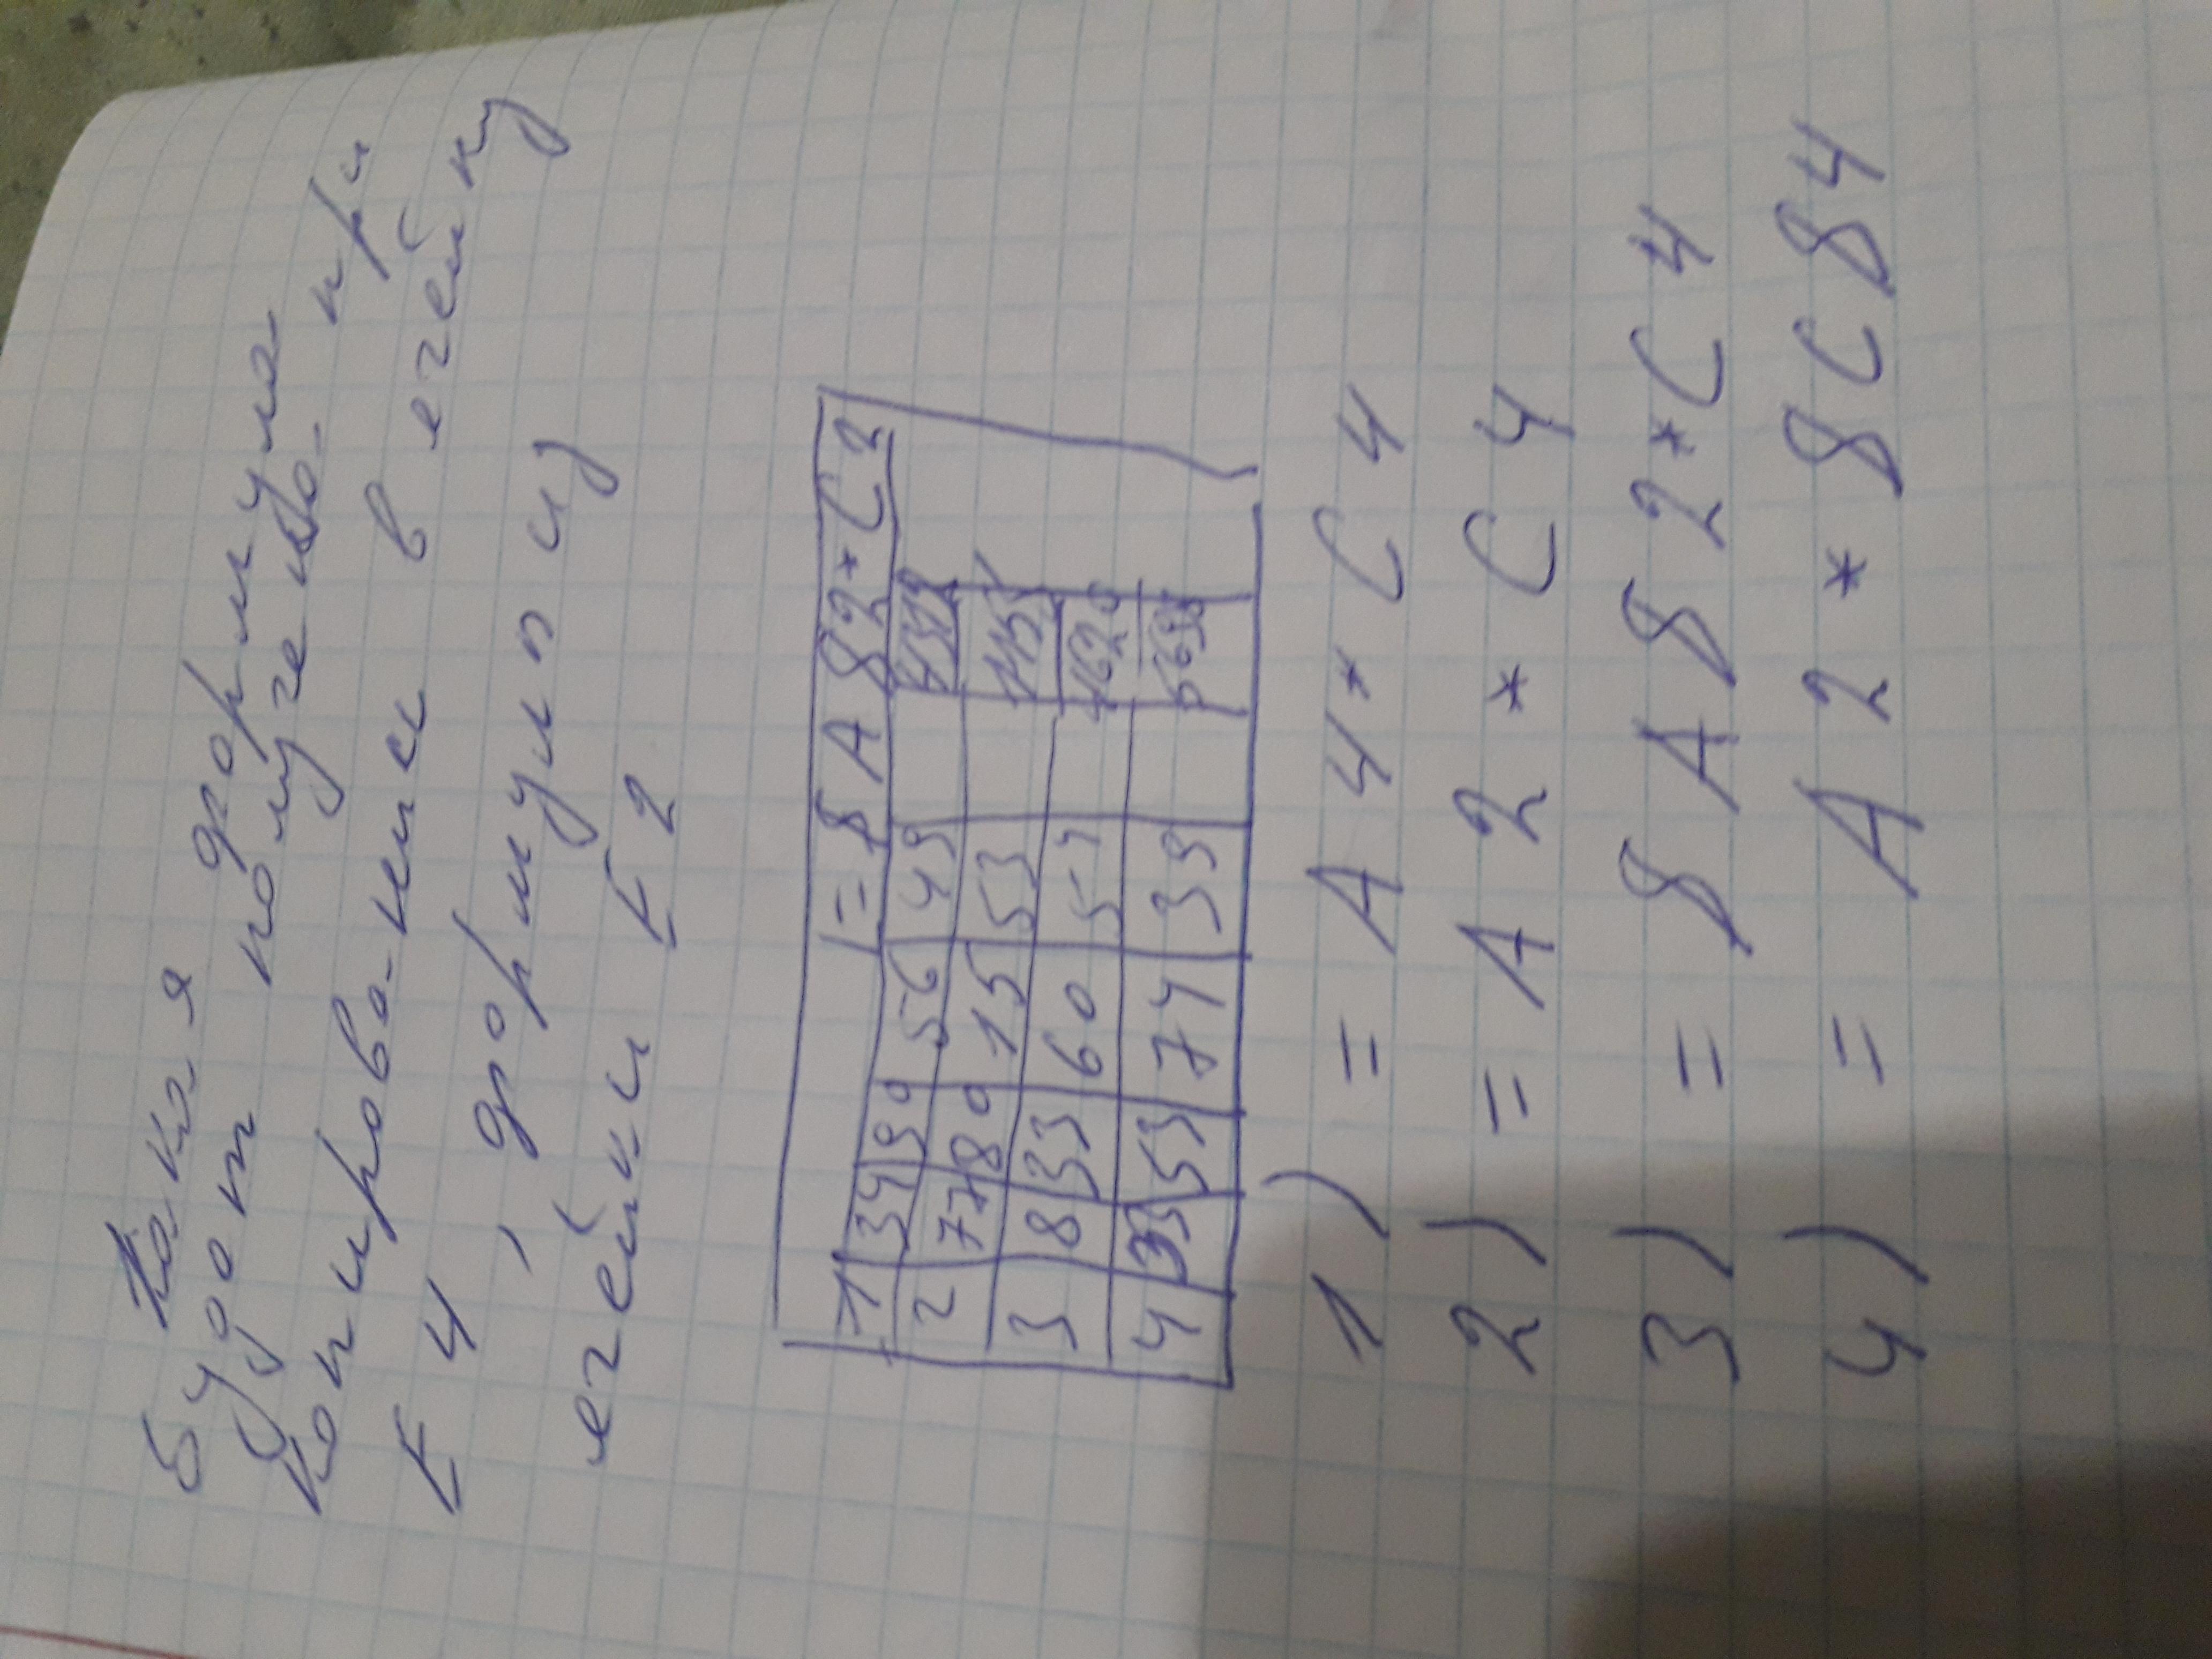 Какая формула
будет получена при
копировании в ячейку
E4, формулы из
ячейки E2
=$A$2*C2
1 34 90 56 49
2 778 90 15 53
3 8 33 60 54 1620
4 93 53 74 39
1) = A4*C4
2) = A2*C4
3) = $A$2*C4
4) = A2*$C$4